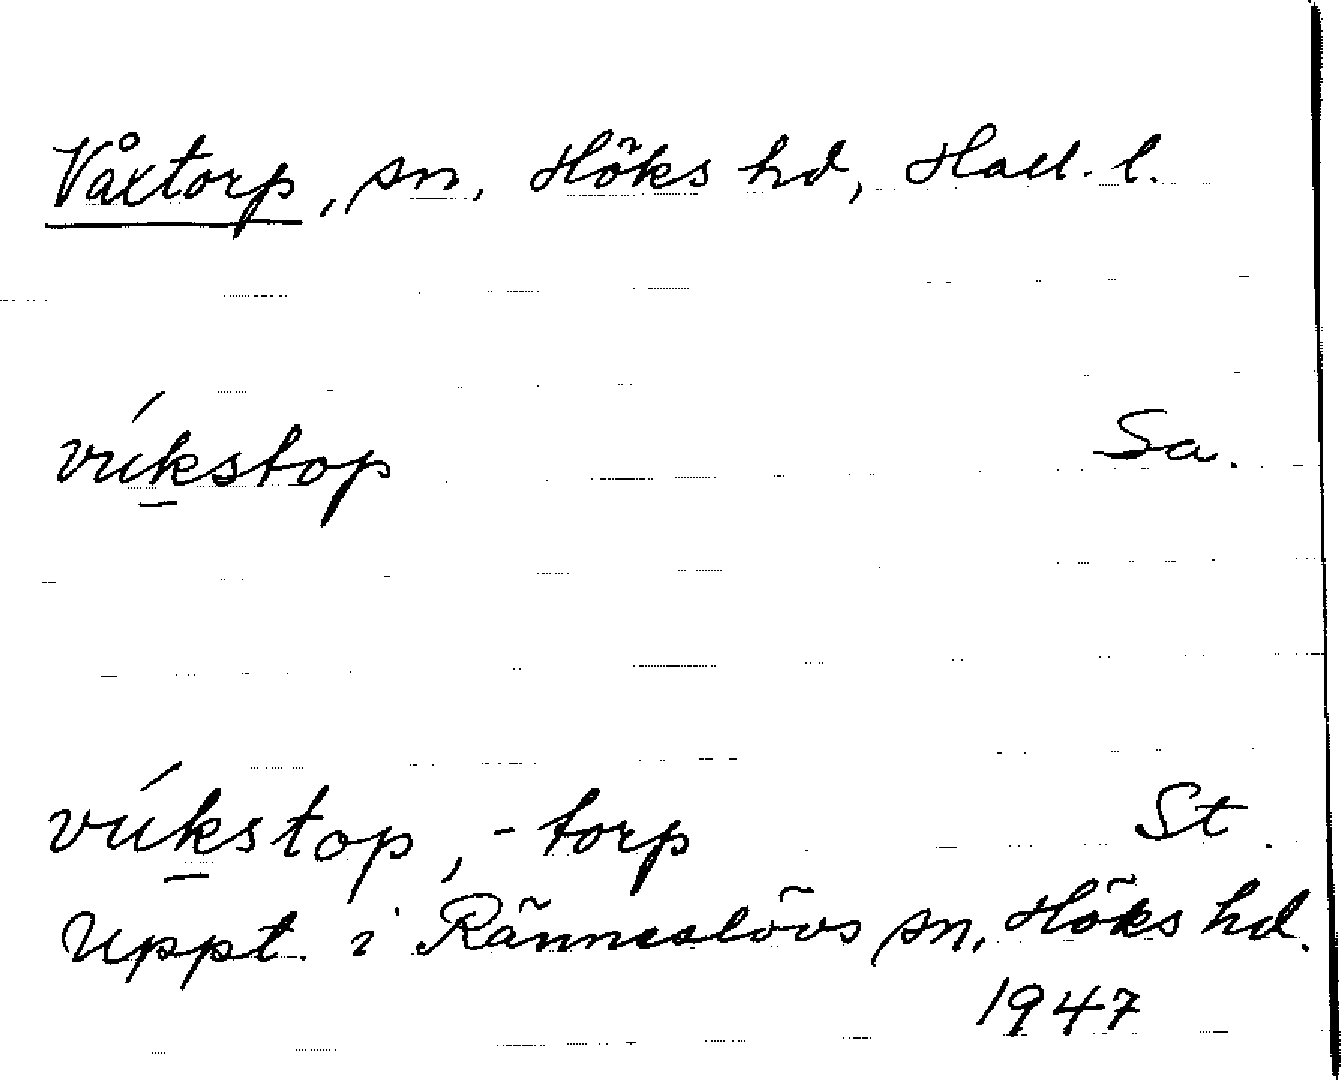 Våxtorp, sn, Höks hd, Hall. l.
vúkstop Sa.
vúkstop, -torp St.
Uppt. i Ränneslövs sn, Höks hd.
1947